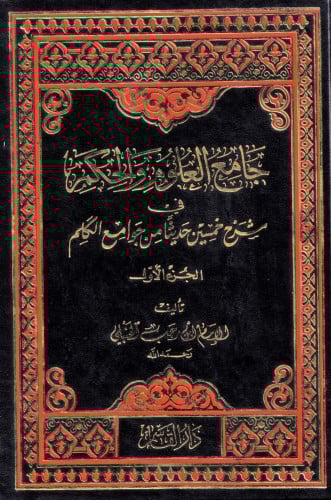 جامع العلوم والحكم
في
شرح خمسين حديثا من جوامع الكلم
الجزء الأول
تأليف
الإمام ابن رجب الحنبلي
رحمه الله
دار القلم